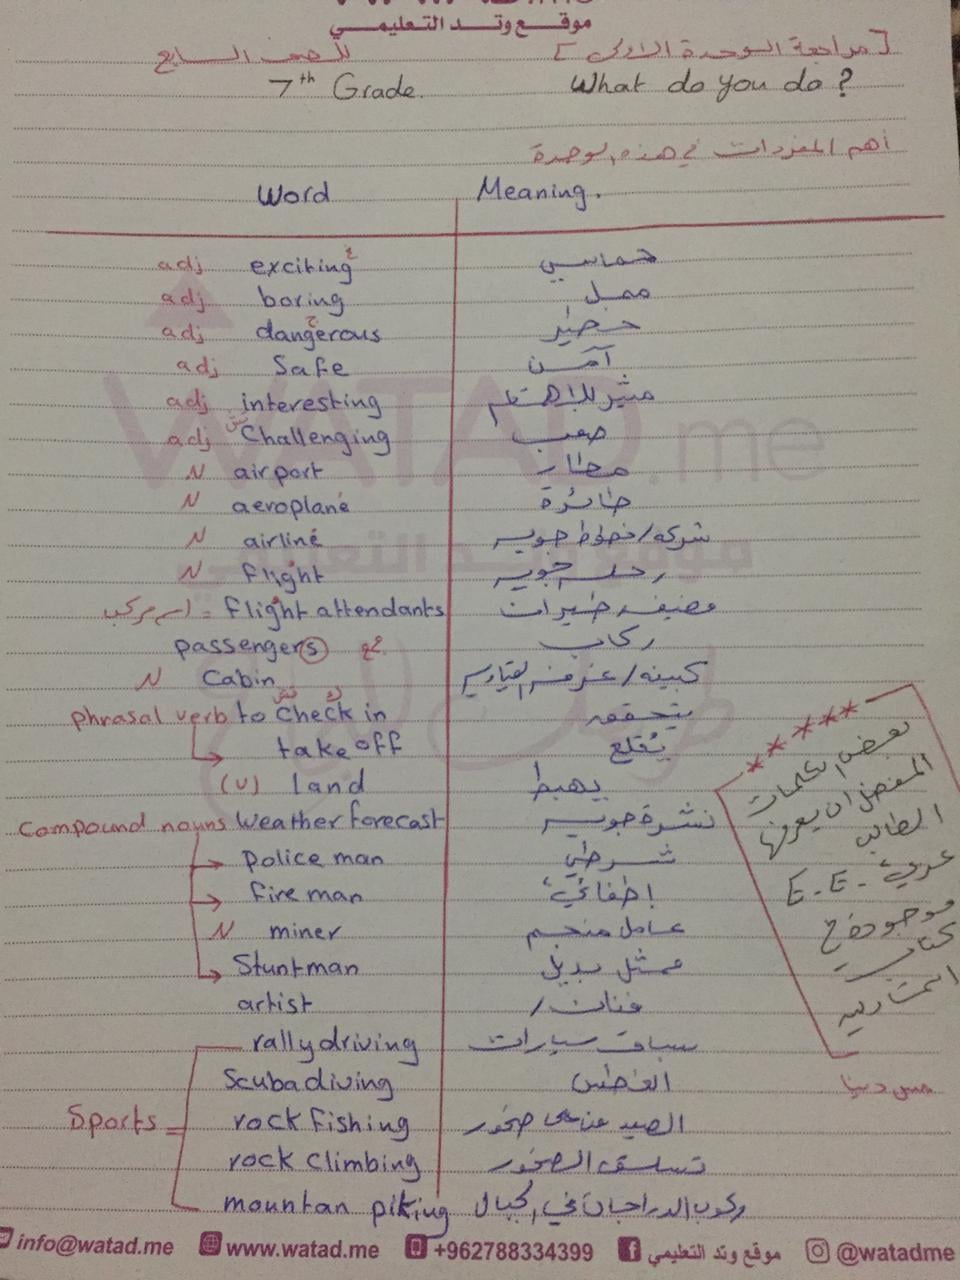 موقع وتد التعليمي
[مراجعة الوحدة الاولى] للصف السابع
What do you do? 7th Grade.
أهم المفردات في هذه الوحدة
Word Meaning.
adj exciting حماسي
adj boring ممل
adj dangerous ج خطير
adj Safe آمن
adj interesting مثير للاهتمام
adj Challenging تش صعب
N airport مطار
N aeroplane طائرة
N airline شركة/خطوط جويه
N flight رحله جويه
اسم مركب = flight attendants مضيفه طيران
passengers جمع ركاب
N Cabin كبينه/غرفه القياده
phrasal verb to check in تش ك يتحقق
take off يُقلع
(v) land يهبط
Compound nouns weather forecast نشرة جويه
police man شرطي
fire man إطفائي
N miner عامل منجم
Stuntman ممثل بديل
artist فنان/
rally driving سباق سيارات
Scuba diving الغطس
Sports = rock fishing الصيد عن على صخور
rock climbing تسلق الصخور
mountan piking ركوب الدراجات في الجبال
*****
بعض الكلمات
المفضل ان يعرفها
الطالب
عربي - E - E
موجوده في
كتاب
التمارين
مس دينا
info@watad.me www.watad.me +962788334399 موقع وتد التعليمي @watadme
WATAD.me
موقع وتد التعليمي